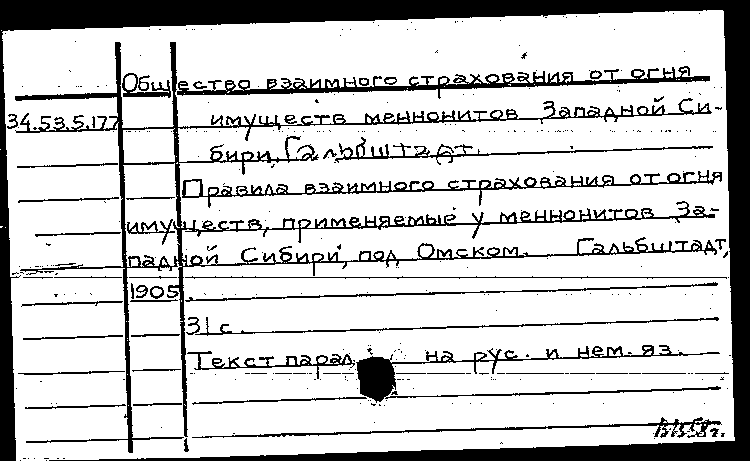 Общество взаимного страхования от огня
34.53.5.177 имуществ меннонитов Западной Си-
бири, Гальбштадт.
Правила взаимного страхования от огня
имуществ, применяемые у меннонитов За-
падной Сибири, под Омском. Гальбштадт,
1905.
31 с.
Текст парал. на рус. и нем. яз.